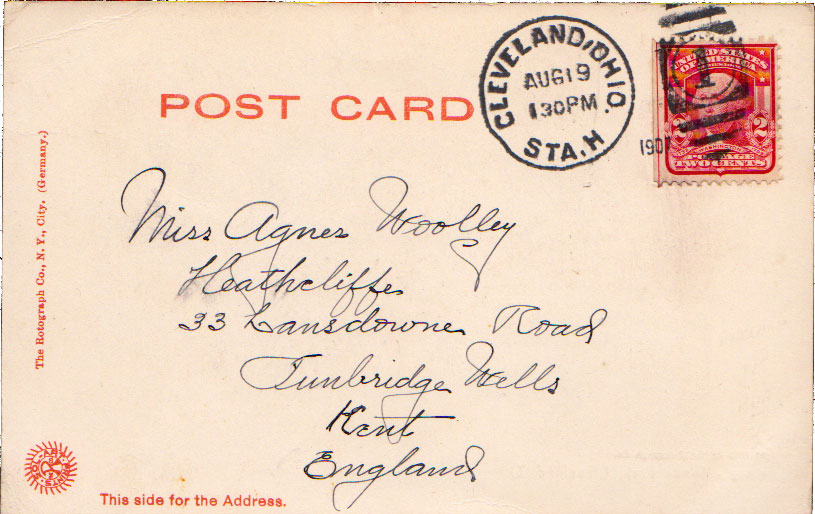 POST CARD
CLEVELAND, OHIO.
AUG 19
130 PM
STA. H
190
UNITED STATES
OF AMERICA
2 2
POSTAGE
TWO CENTS
The Rotograph Co., N. Y., City. (Germany.)
Miss Agnes Woolley
Heathcliffe
33 Lansdowne Road
Tunbridge Wells
Kent
England
This side for the Address.